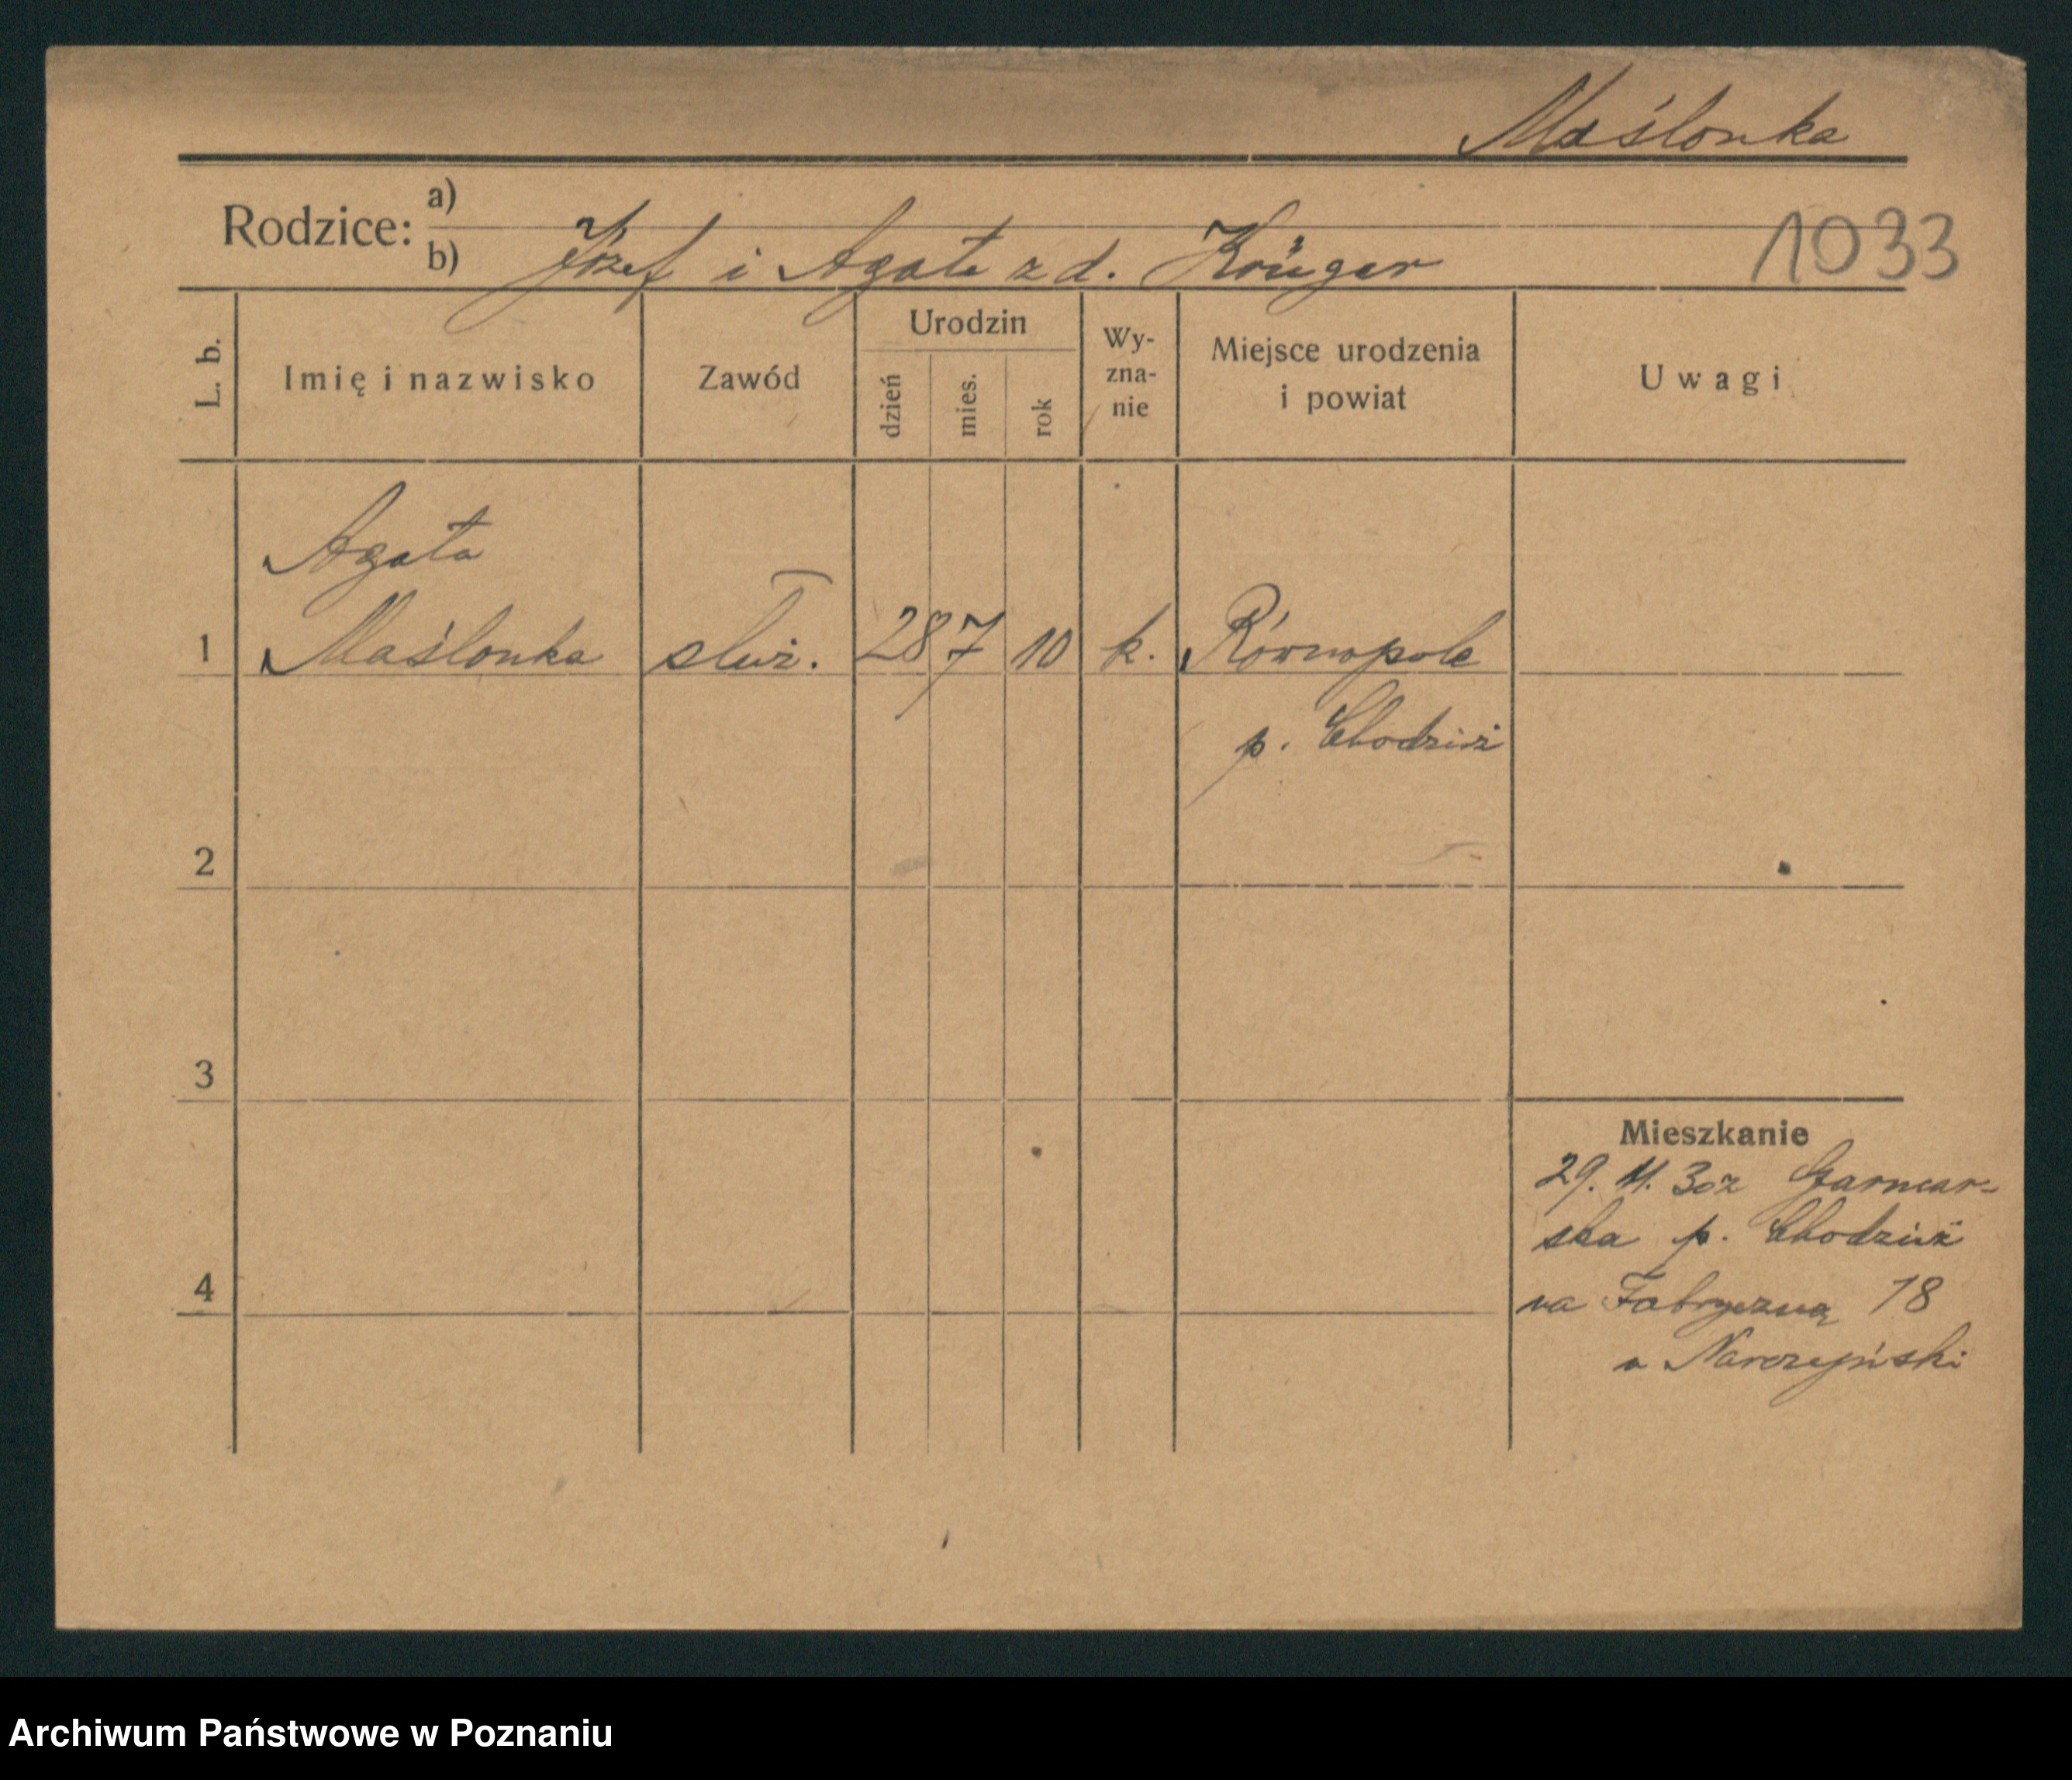 Maślonka
Rodzice: a)
b) Józef i Agata z d. Krüger
1033
L. b. Imię i nazwisko Zawód Urodzin dzień mies. rok Wy-zna-nie Miejsce urodzenia i powiat Uwagi
Agata
1 Maślonka służ. 28 7 10 k. Równopole
p. Chodzież
2
3
Mieszkanie
29. 11. 30 z Garncar-
ska p. Chodzież
4
na Fabryczną 18
u
Archiwum Państwowe w Poznaniu